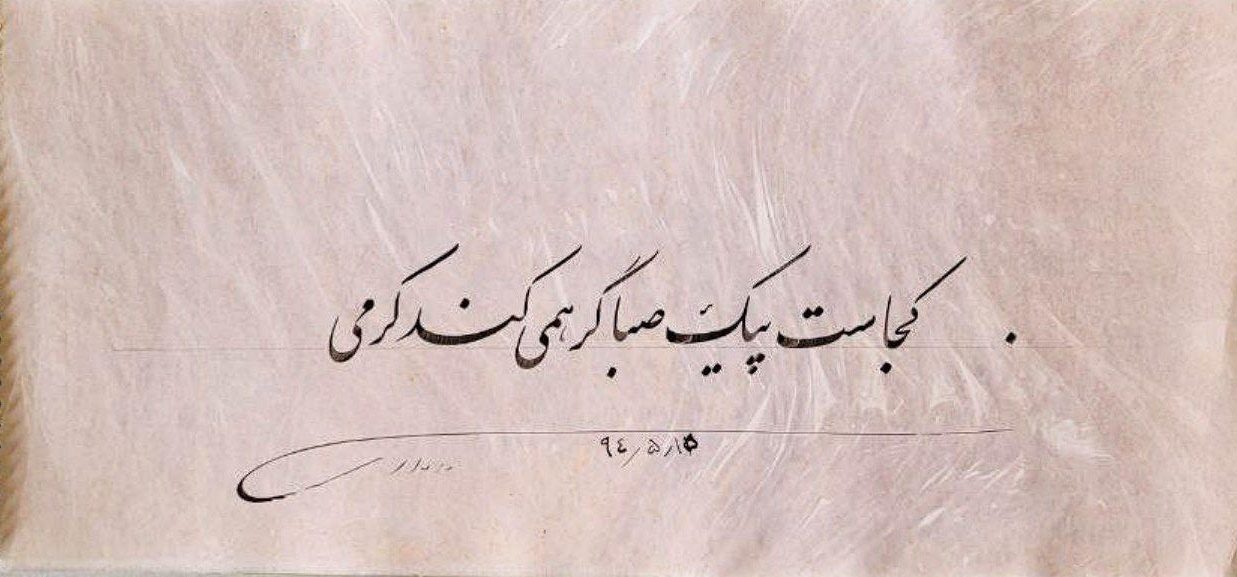 کجاست پیک صبا گر همی کند کرمی
۹۴٫۵٫۱۵